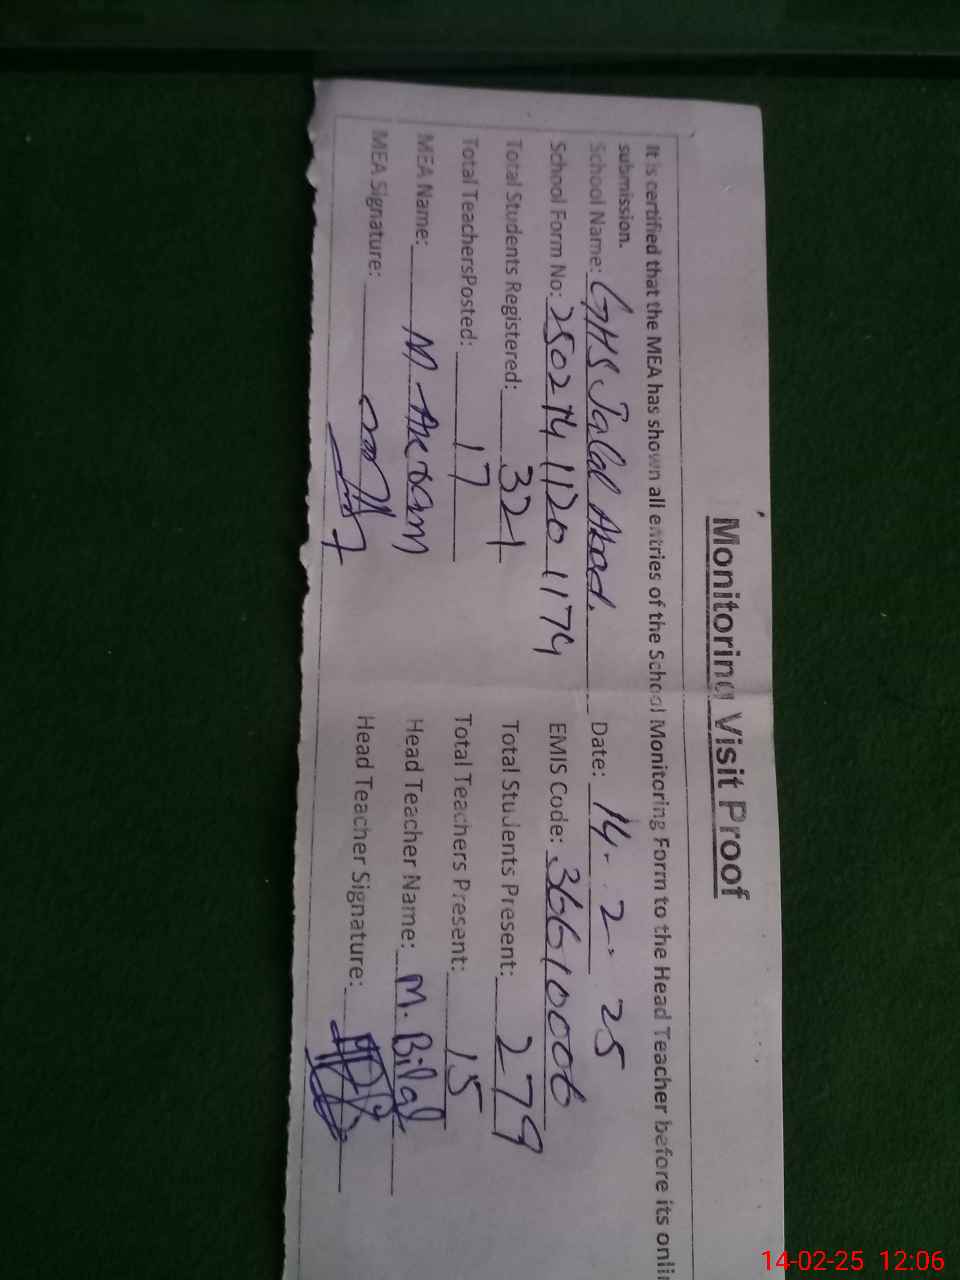 Monitoring Visit Proof
It is certified that the MEA has shown all entries of the School Monitoring Form to the Head Teacher before its onli
submission.
School Name: GHS Jalal Abad. Date: 14. 2. 25
School Form No: 250214 1120 1179 EMIS Code: 36610006
Total Students Registered: 321 Total Students Present: 279
Total TeachersPosted: 17 Total Teachers Present: 15
MEA Name: M. Head Teacher Name: M. Bilal
MEA Signature: Head Teacher Signature:
14-02-25 12:06